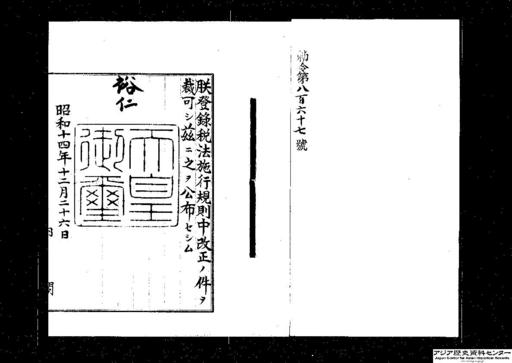 勅令第八百六十七號
朕登錄稅法施行規則中改正ノ件ヲ
裁可シ茲ニ之ヲ公布セシム
裕仁
天皇
御璽
昭和十四年十二月二十六日
内閣
アジア歴史資料センター
Japan Center for Asian Historical Records